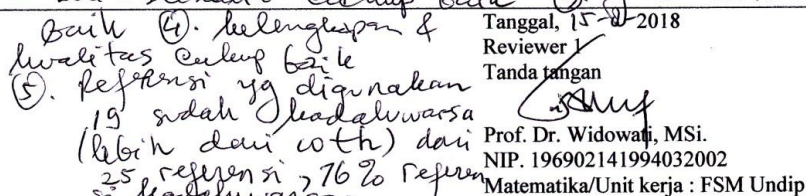 baik (4). kelengkapan &
kwalitas cukup baik
(5). Referensi yg digunakan
19 sudah kadaluwarsa
(lebih dari 10 th) dari
25 referensi, 76% referen
si kadaluwarsa
Tanggal, 15- -2018
Reviewer 1
Tanda tangan
Prof. Dr. Widowati, MSi.
NIP. 196902141994032002
Matematika/Unit kerja : FSM Undip